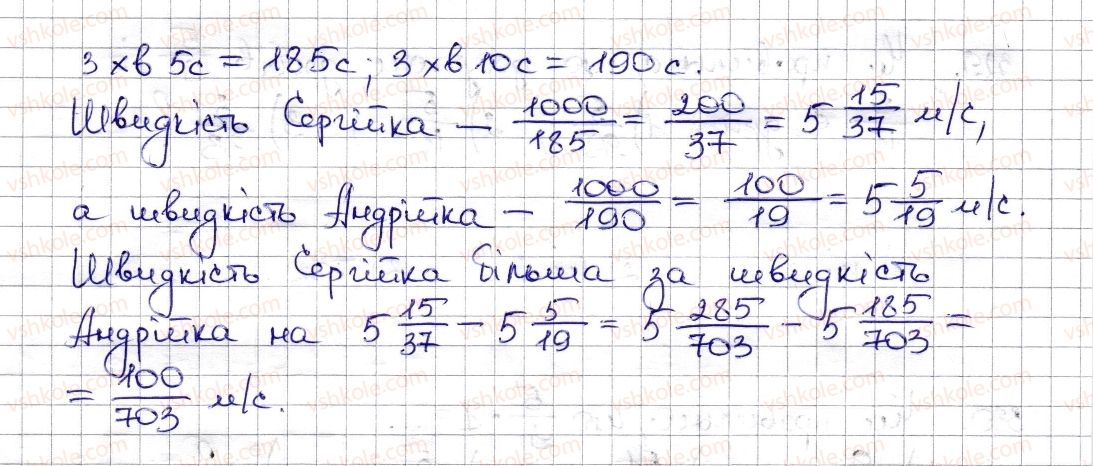 3 хв 5с = 185с; 3 хв 10с = 190 с.
Швидкість Сергійка – 1000/185 = 200/37 = 5 15/37 м/с,
а швидкість Андрійка – 1000/190 = 100/19 = 5 5/19 м/с.
Швидкість Сергійка більша за швидкість
Андрійка на 5 15/37 – 5 5/19 = 5 285/703 – 5 185/703 =
= 100/703 м/с.